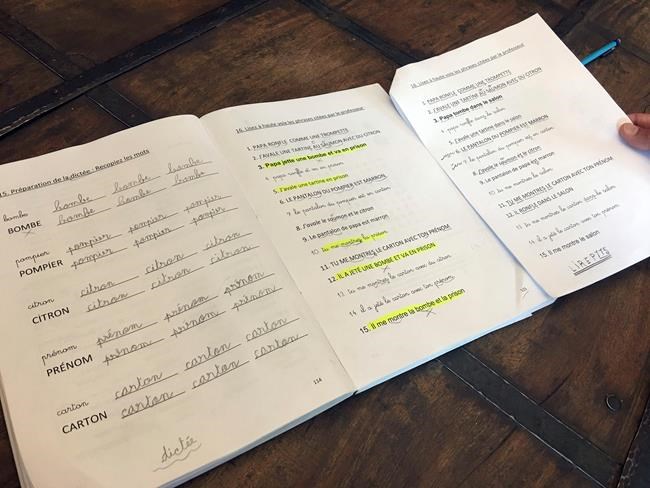 15. Préparation de la dictée : Recopiez les mots
bombe bombe bombe bombe
BOMBE bombe bombe bombe
pompier pompier pompier pompier
POMPIER pompier pompier pompier
citron citron citron citron
CITRON citron citron citron
prénom prénom prénom prénom
PRÉNOM prénom prénom prénom
carton carton carton carton
CARTON carton carton carton
114
dictée
16. Lisez à haute voix les phrases citées par le professeur
1. PAPA RONFLE COMME UNE TROMPETTE
2. J'AVALE UNE TARTINE AU SAUMON AVEC DU CITRON
3. Papa jette une bombe et va en prison
4. papa ronfle en prison
5. J'avale une tartine en prison
6. LE PANTALON DU POMPIER EST MARRON
7. le pantalon du pompier est en carton
8. J'avale le saumon et le citron
9. Le pantalon de papa est marron
10. tu me montres la prison
11. TU ME MONTRES LE CARTON AVEC TON PRÉNOM
12. IL A JETÉ UNE BOMBE ET VA EN PRISON
13. tu me montres le carton avec du citron
14. il a jeté le carton avec ton prénom
15. Il me montre la bombe et la prison
16. Lisez à haute voix les phrases citées par le professeur
1. PAPA RONFLE COMME UNE TROMPETTE
2. J'AVALE UNE TARTINE AU SAUMON AVEC DU CITRON
3. Papa tombe dans le salon
4. papa ronfle dans le salon
5. J'avale une tartine dans le salon
6. LE PANTALON DU POMPIER EST MARRON
7. le pantalon du pompier est en carton
8. J'avale le saumon et le citron
9. Le pantalon de papa est marron
10. tu me montres le salon
11. TU ME MONTRES LE CARTON AVEC TON PRÉNOM
12. IL RONFLE DANS LE SALON
13. tu me montres le carton dans le salon
14. il a jeté le carton avec ton prénom
15. Il me montre le salon